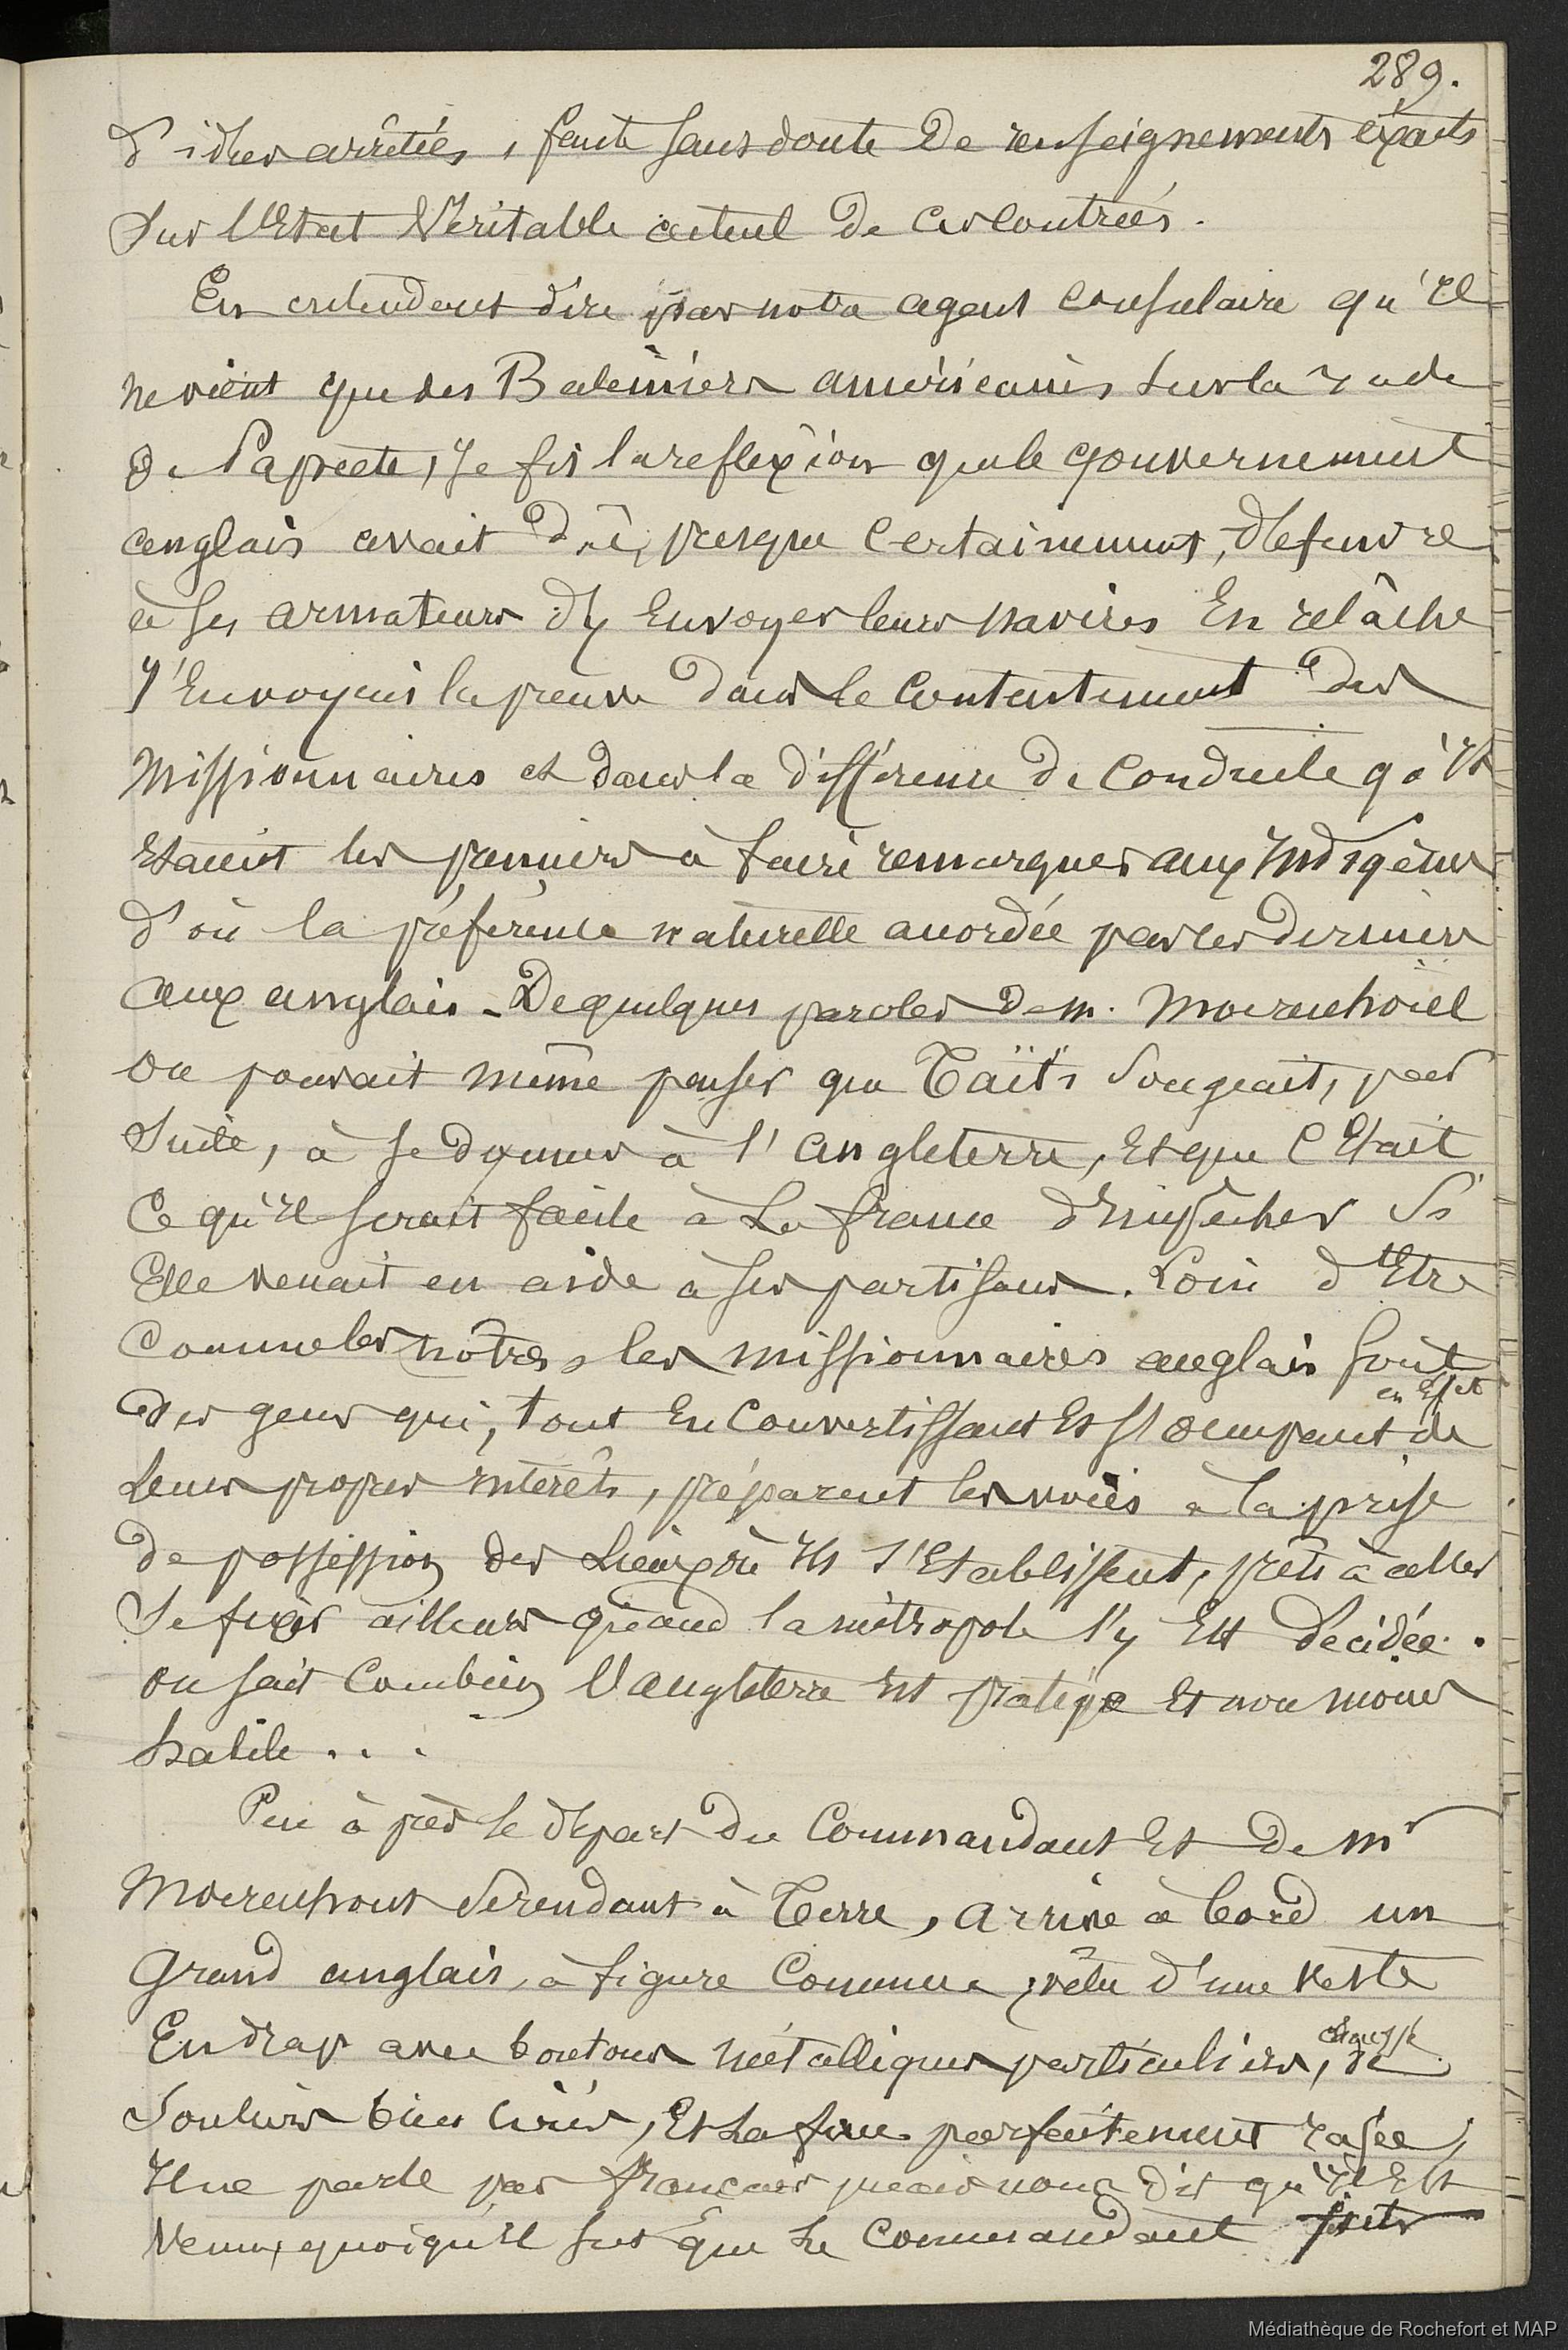 289.
d'idées arrêtées, faute sans doute de renseignements éxacts
sur l'Etat Véritable actuel de ces contrées.
En entendant dire par notre agent consulaire qu'Il
ne vient que des Baleiniers américains sur la rade
de Papeete, Je fis la reflexion que le gouvernement
anglais avait dû, presque certainement, défendre
à ses armateurs d'y Envoyer leurs navires En relâche
J'En voyais la preuve dans le contentement des
missionnaires et dans la différence de conduite qu'Ils
Etaient les premiers à faire remarquer aux Indigènes
d'où la préférence naturelle accordée par ces derniers
aux anglais - De quelques paroles de m.
on pouvait même penser que Taïti songeait, par
suite, à se donner à l'angleterre, Et que c'Etait
Ce qu'Il serait facile à La france d'Empêcher Si
Elle venait en aide à ses partisans. Loin d'Etre
comme les notres, les missionnaires anglais sont
en Effet
des gens qui, tout En convertissant Et s'occupant de
leurs propres intérêts, préparent les voies à la prise
de possession des Lieux où Ils s'Etablissent, prêts à aller
se fixer ailleurs quand la métropole s'y Est décidée.
on sait combien l'angleterre Est pratique Et non moins
habile . . .
Peu après le départ du Commandant Et de Mr
Moerenhout se rendant à Terre, arrive à bord un
Grand anglais, à figure Commune, vêtu d'une veste
En drap avec boutons métalliques particuliers,
chaussé
de
Souliers bien cirés, Et La face parfaitement rasée,
Il ne parle pas français mais nous dit qu'Il Est
Venu, quoiqu'Il sut que le Commandant